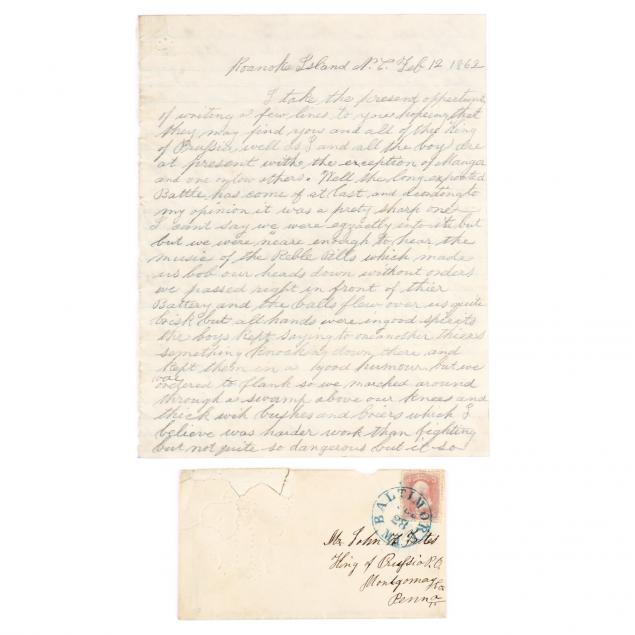 Roanoke Island N.C. Feb 12 1862
I take the present opportune
of writing a few lines to you hopeing that
they may find you and all of the King
of Prussia well as I and all the boys are
at present withe the exception of
and one or tow others. Well the long expected
Battle has come of at last and acording to
my opinion it was a prety sharp one
I cant say we were egxactly into it but
but we were neare enough to hear the
music of the Reble Pills which made
us bob our heads down without orders
we passed right in front of thier
Battery and the balls flew over us quite
brisk but all hands were in good spirits
the boys kept saying to one another thiers
something knocking down there and
kept them in a good humour but we
was
ordered to flank so we marched around
through a swamp above our knees and
thick with bushes and briers which I
believe was harder work than fighting
but not quite so dangerous but it so
BALTIMORE
Mr John
King of Prussia P.O.
Montgomay Co
Penna